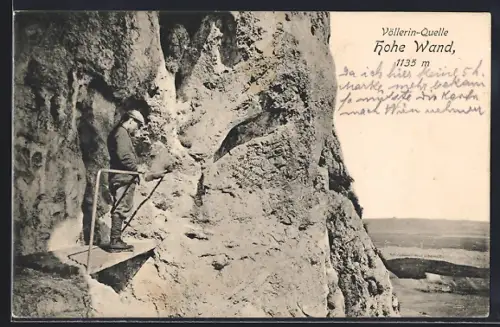 Völlerin-Quelle
Hohe Wand,
1135 m
Da ich hier keine 5 h.
Marke mehr bekam
so mußte die Karte
nach Wien nehmen